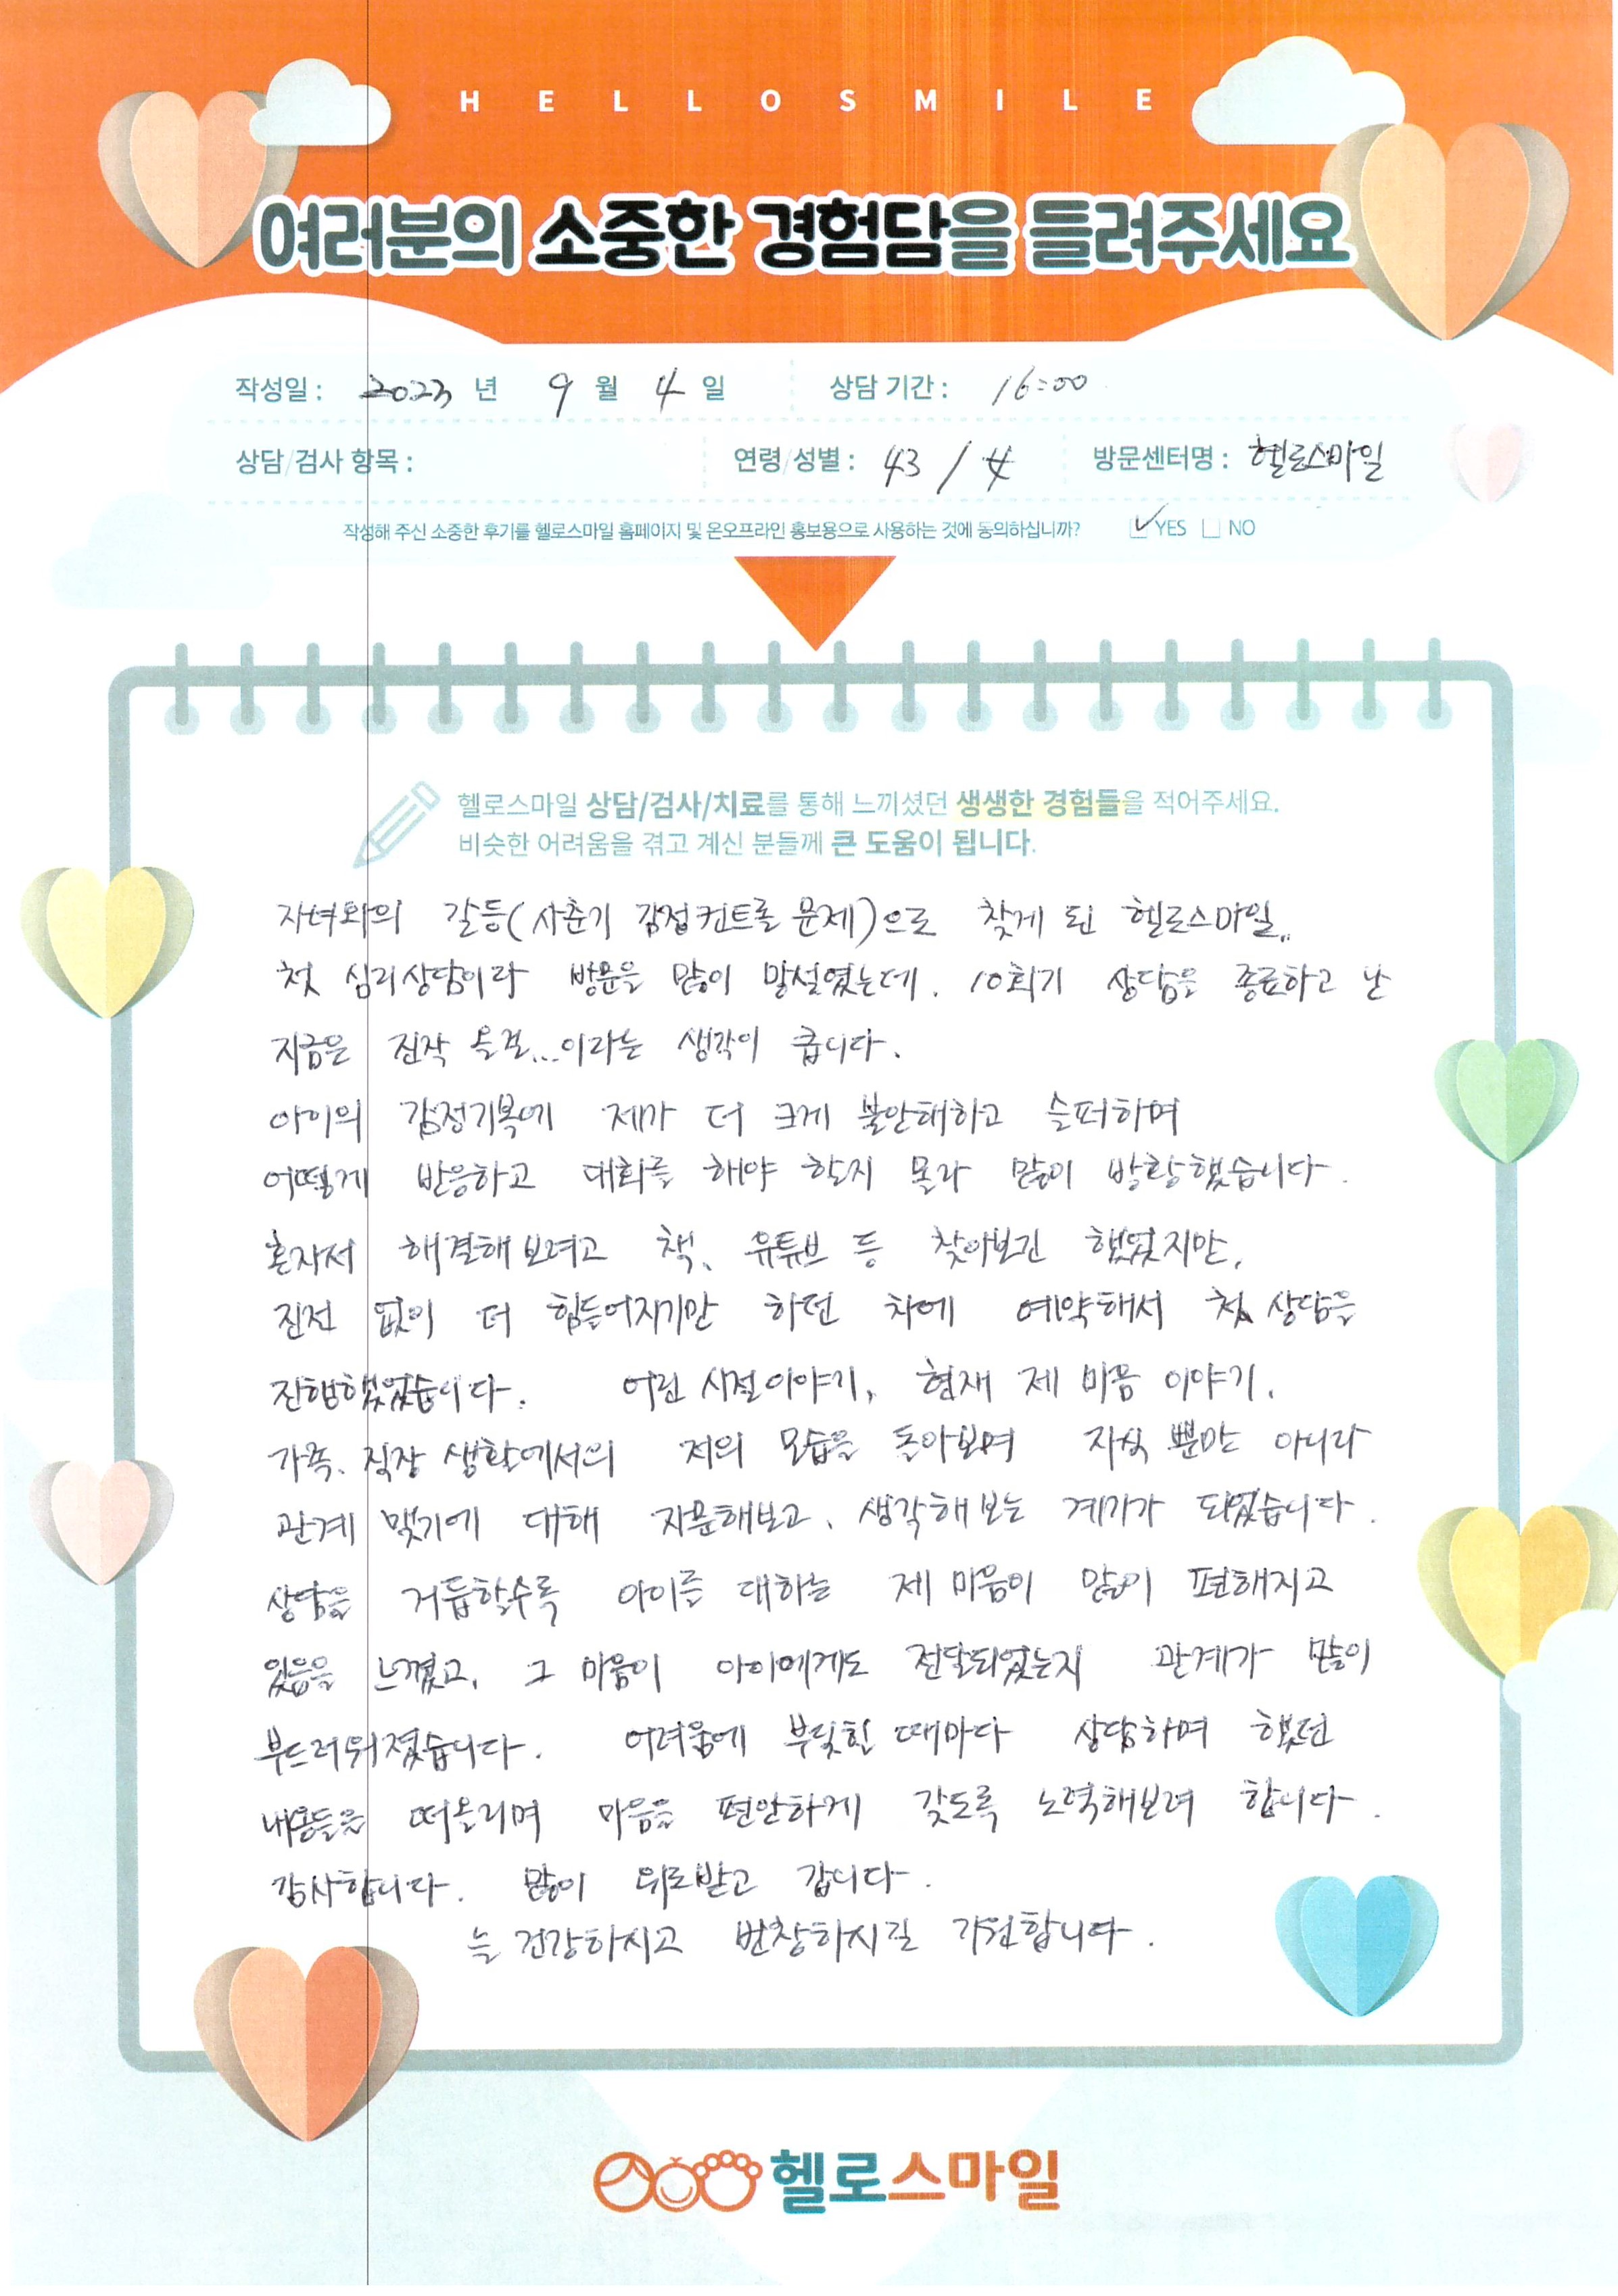 HELLOSMILE
여러분의 소중한 경험담을 들려주세요
작성일 : 2023 년 9 월 4 일 상담 기간 : 16:00
상담/검사 항목 : 연령/성별 : 43 / 여 방문센터명 : 헬로스마일
작성해 주신 소중한 후기를 헬로스마일 홈페이지 및 온오프라인 홍보용으로 사용하는 것에 동의하십니까? ☑ YES ☐ NO
헬로스마일 상담/검사/치료를 통해 느끼셨던 생생한 경험들을 적어주세요.
비슷한 어려움을 겪고 계신 분들께 큰 도움이 됩니다.
자녀와의 갈등(사춘기 감정컨트롤 문제)으로 찾게 된 헬로스마일..
첫 심리상담이라 방문을 많이 망설였는데, 10회기 상담을 종료하고 난
지금은 진작 올걸...이라는 생각이 큽니다.
아이의 감정기복에 제가 더 크게 불안해하고 슬퍼하며
어떻게 반응하고 대화를 해야 할지 몰라 많이 방황했습니다.
혼자서 해결해보려고 책, 유튜브 등 찾아보긴 했었지만,
진전 없이 더 힘들어지기만 하던 차에 예약해서 첫 상담을
진행했었습니다. 어린 시절이야기, 현재 제 마음 이야기,
가족, 직장 생활에서의 저의 모습을 돌아보며 자식 뿐만 아니라
관계 맺기에 대해 자문해보고, 생각해 보는 계기가 되었습니다.
상담을 거듭할수록 아이를 대하는 제 마음이 많이 편해지고
있음을 느꼈고, 그 마음이 아이에게도 전달되었는지 관계가 많이
부드러워졌습니다. 어려움에 부딪힌 때마다 상담하며 했던
내용들을 떠올리며 마음을 편안하게 갖도록 노력해보려 합니다.
감사합니다. 많이 위로받고 갑니다.
늘 건강하시고 번창하시길 기원합니다.
헬로스마일